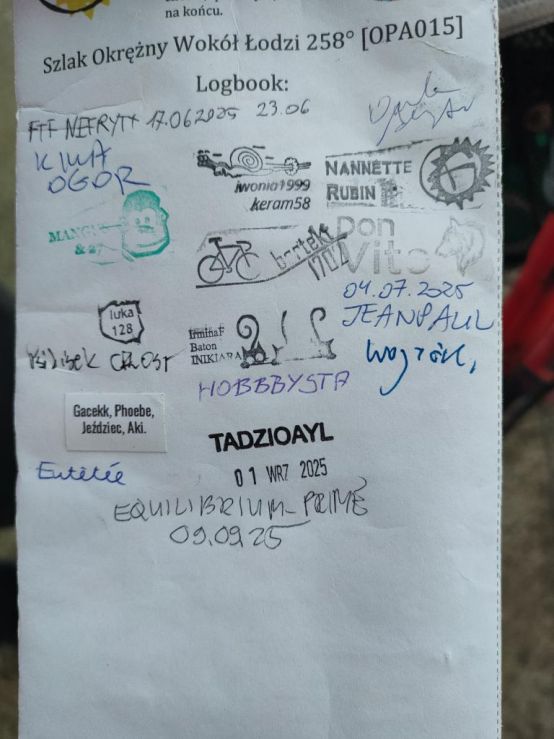 na końcu.
Szlak Okrężny Wokół Łodzi 258° [OPA015]
Logbook:
FTF NEFRYTX 17.062025 23.06
OGÓR
iwonia1999
keram58
NANNETTE
RUBIN
MANG
& 27
bartek
1702
Don
Vito
04.07.2025
JEANPAUL
luka
128
IrminaF
Baton
INIKJARA
HOBBBYSTA
Gacekk, Phoebe,
Jeździec, Aki.
TADZIOAYL
01 WRZ 2025
EQUILIBRIUM_PRIME
09.09.25